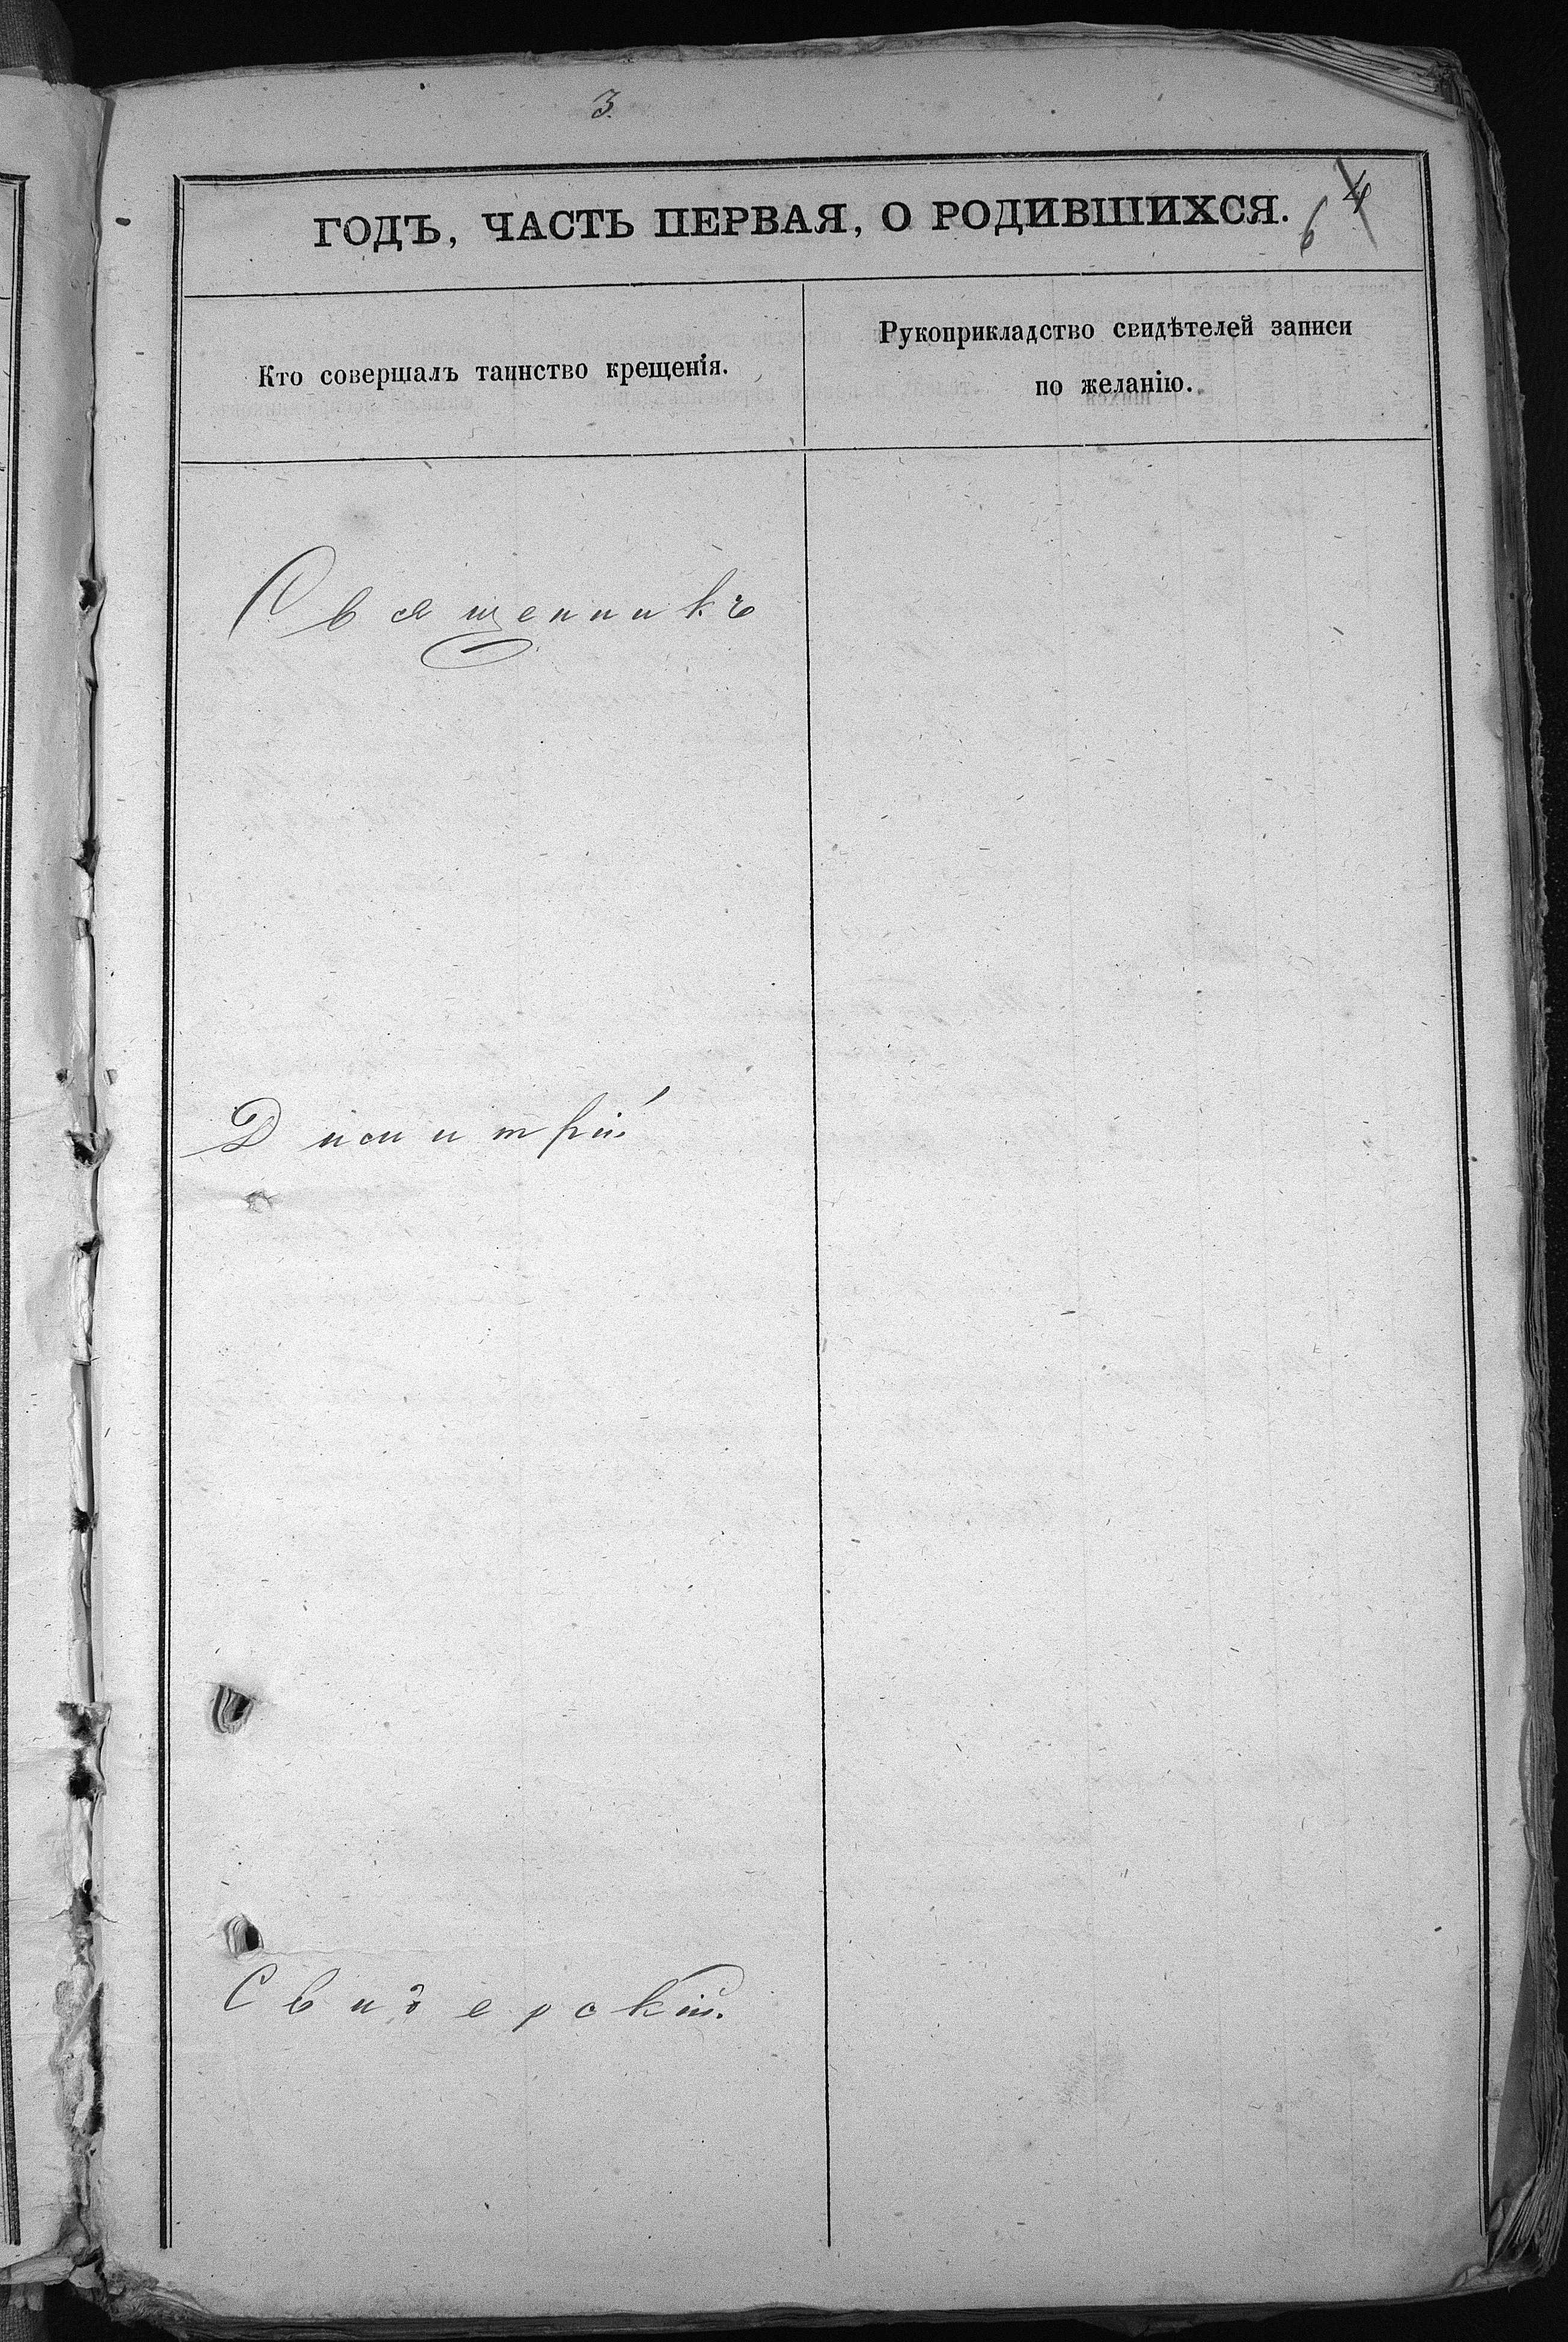 3.
ГОДЪ, ЧАСТЬ ПЕРВАЯ, О РОДИВШИХСЯ.
4
6
Кто совершалъ таинство крещенія.
Рукоприкладство свидѣтелей записи
по желанію.
Священникъ
Димитрій
Свидерскій.